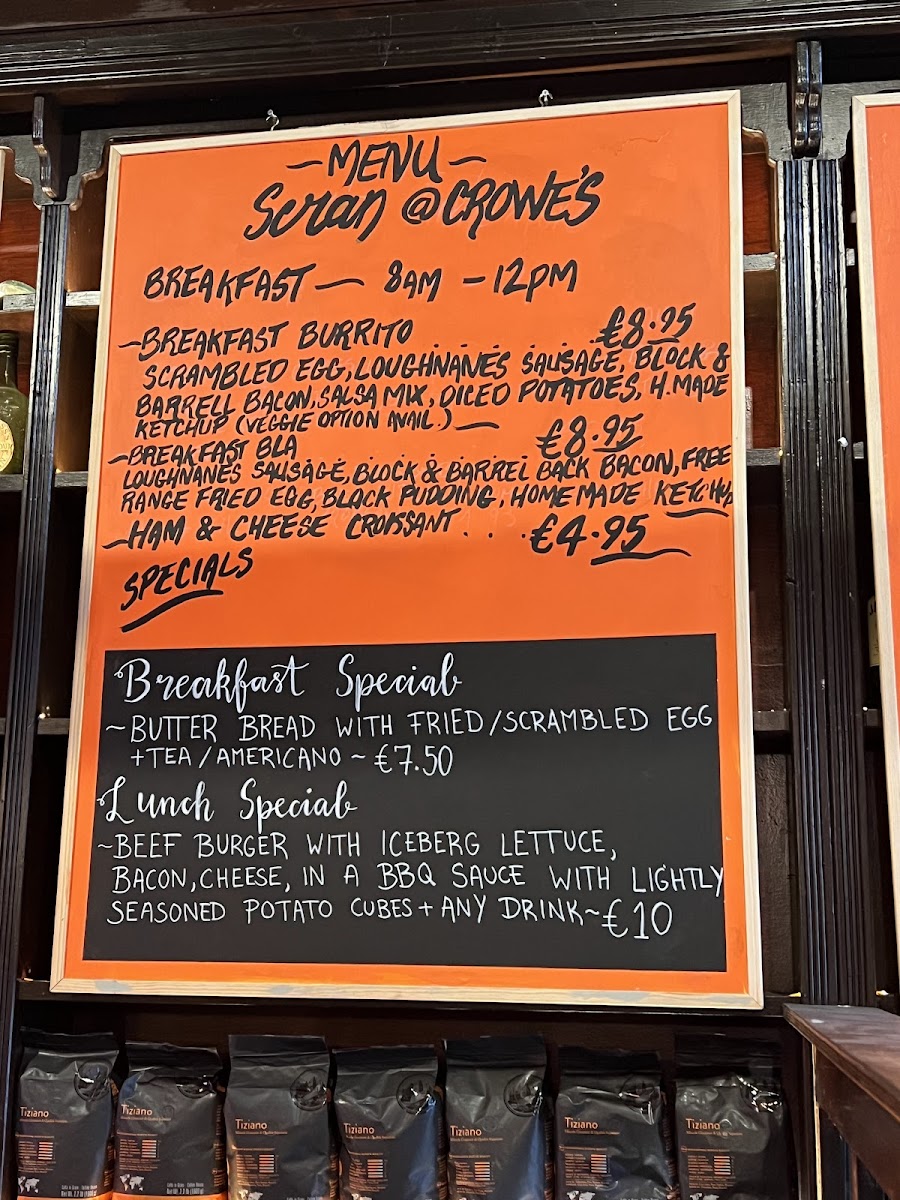 ~MENU~
Scran @ CROWE'S
BREAKFAST — 8AM - 12PM
~BREAKFAST BURRITO . . . . . . . €8.95
SCRAMBLED EGG, LOUGHNANES SAUSAGE, BLOCK &
BARRELL BACON, SALSA MIX, DICED POTATOES, H.MADE
KETCHUP (VEGGIE OPTION AVAIL.)~
~BREAKFAST BLA . . . . . . . €8.95
LOUGHNANES SAUSAGE, BLOCK & BARREL BACK BACON, FREE
RANGE FRIED EGG, BLACK PUDDING, HOMEMADE KETCHUP
~HAM & CHEESE CROISSANT . . . €4.95
SPECIALS
Breakfast Special
~BUTTER BREAD WITH FRIED/SCRAMBLED EGG
+TEA/AMERICANO ~ €7.50
Lunch Special
~BEEF BURGER WITH ICEBERG LETTUCE,
BACON, CHEESE, IN A BBQ SAUCE WITH LIGHTLY
SEASONED POTATO CUBES + ANY DRINK ~ €10
Tiziano
Tiziano
Tiziano
Tiziano
Tiziano
Tiziano
Tiziano